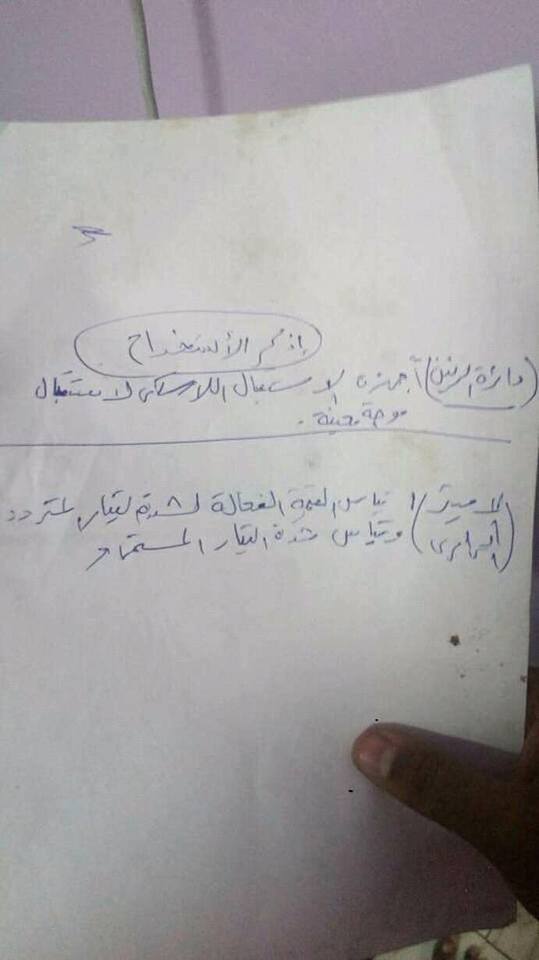 إذكر الأستخداح
(دائرة الرنين) أجهزة الاستقبال اللاسلكى لاستقبال
موجة معينة .
الاميتر / قياس القيمة الفعالة لشدة التيار المتردد
(الحرارى) وقياس شدة التيار المستمر